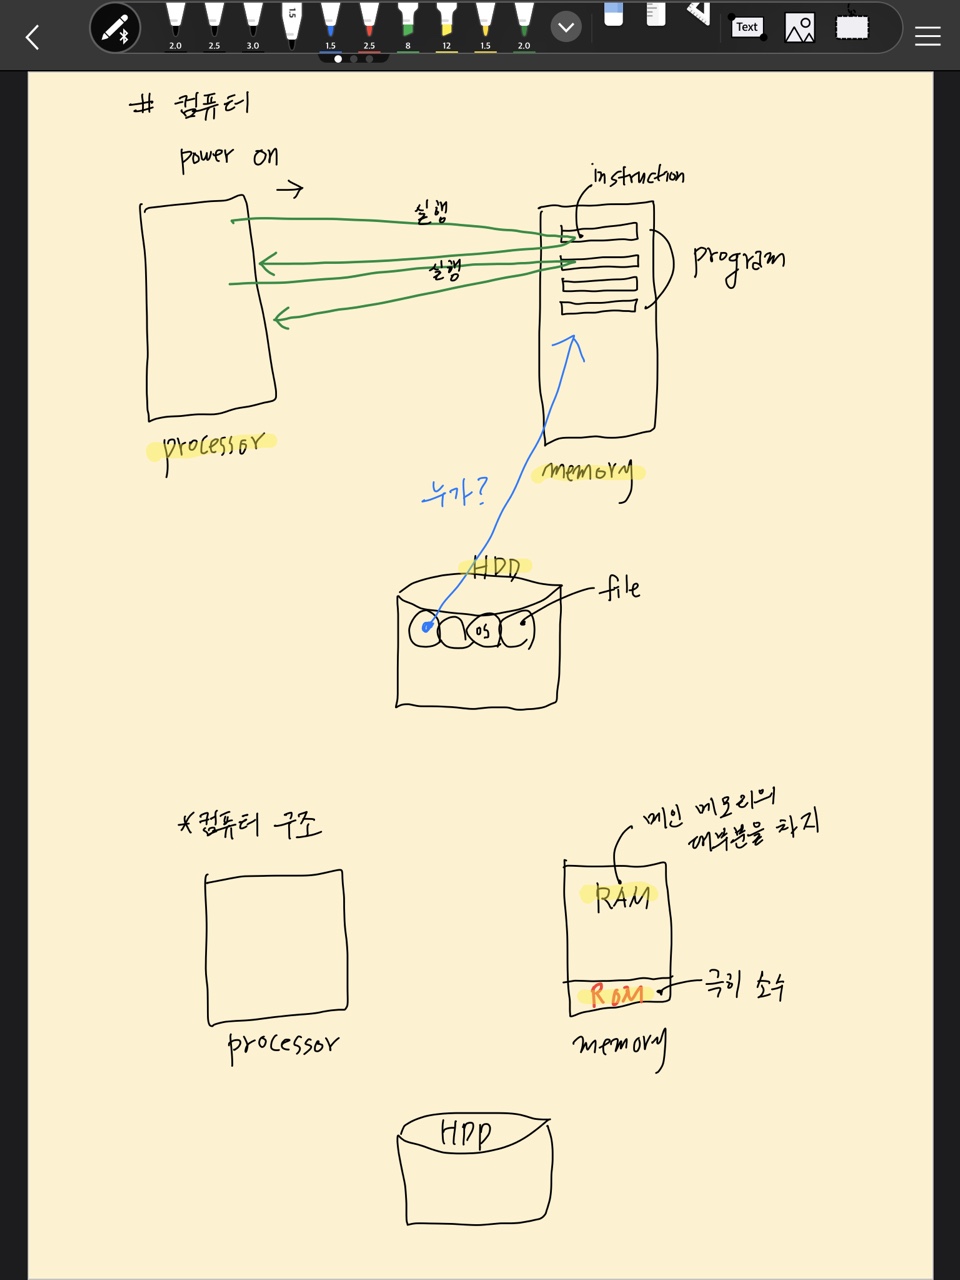 1.5
2.0
2.5
3.0
1.5
2.5
8
12
1.5
2.0
Text
# 컴퓨터
power on
instruction
실행
실행
program
processor
memory
누가?
HDD
file
OS
*컴퓨터 구조
메인 메모리의
대부분을 차지
RAM
ROM
극히 소수
processor
memory
HDD